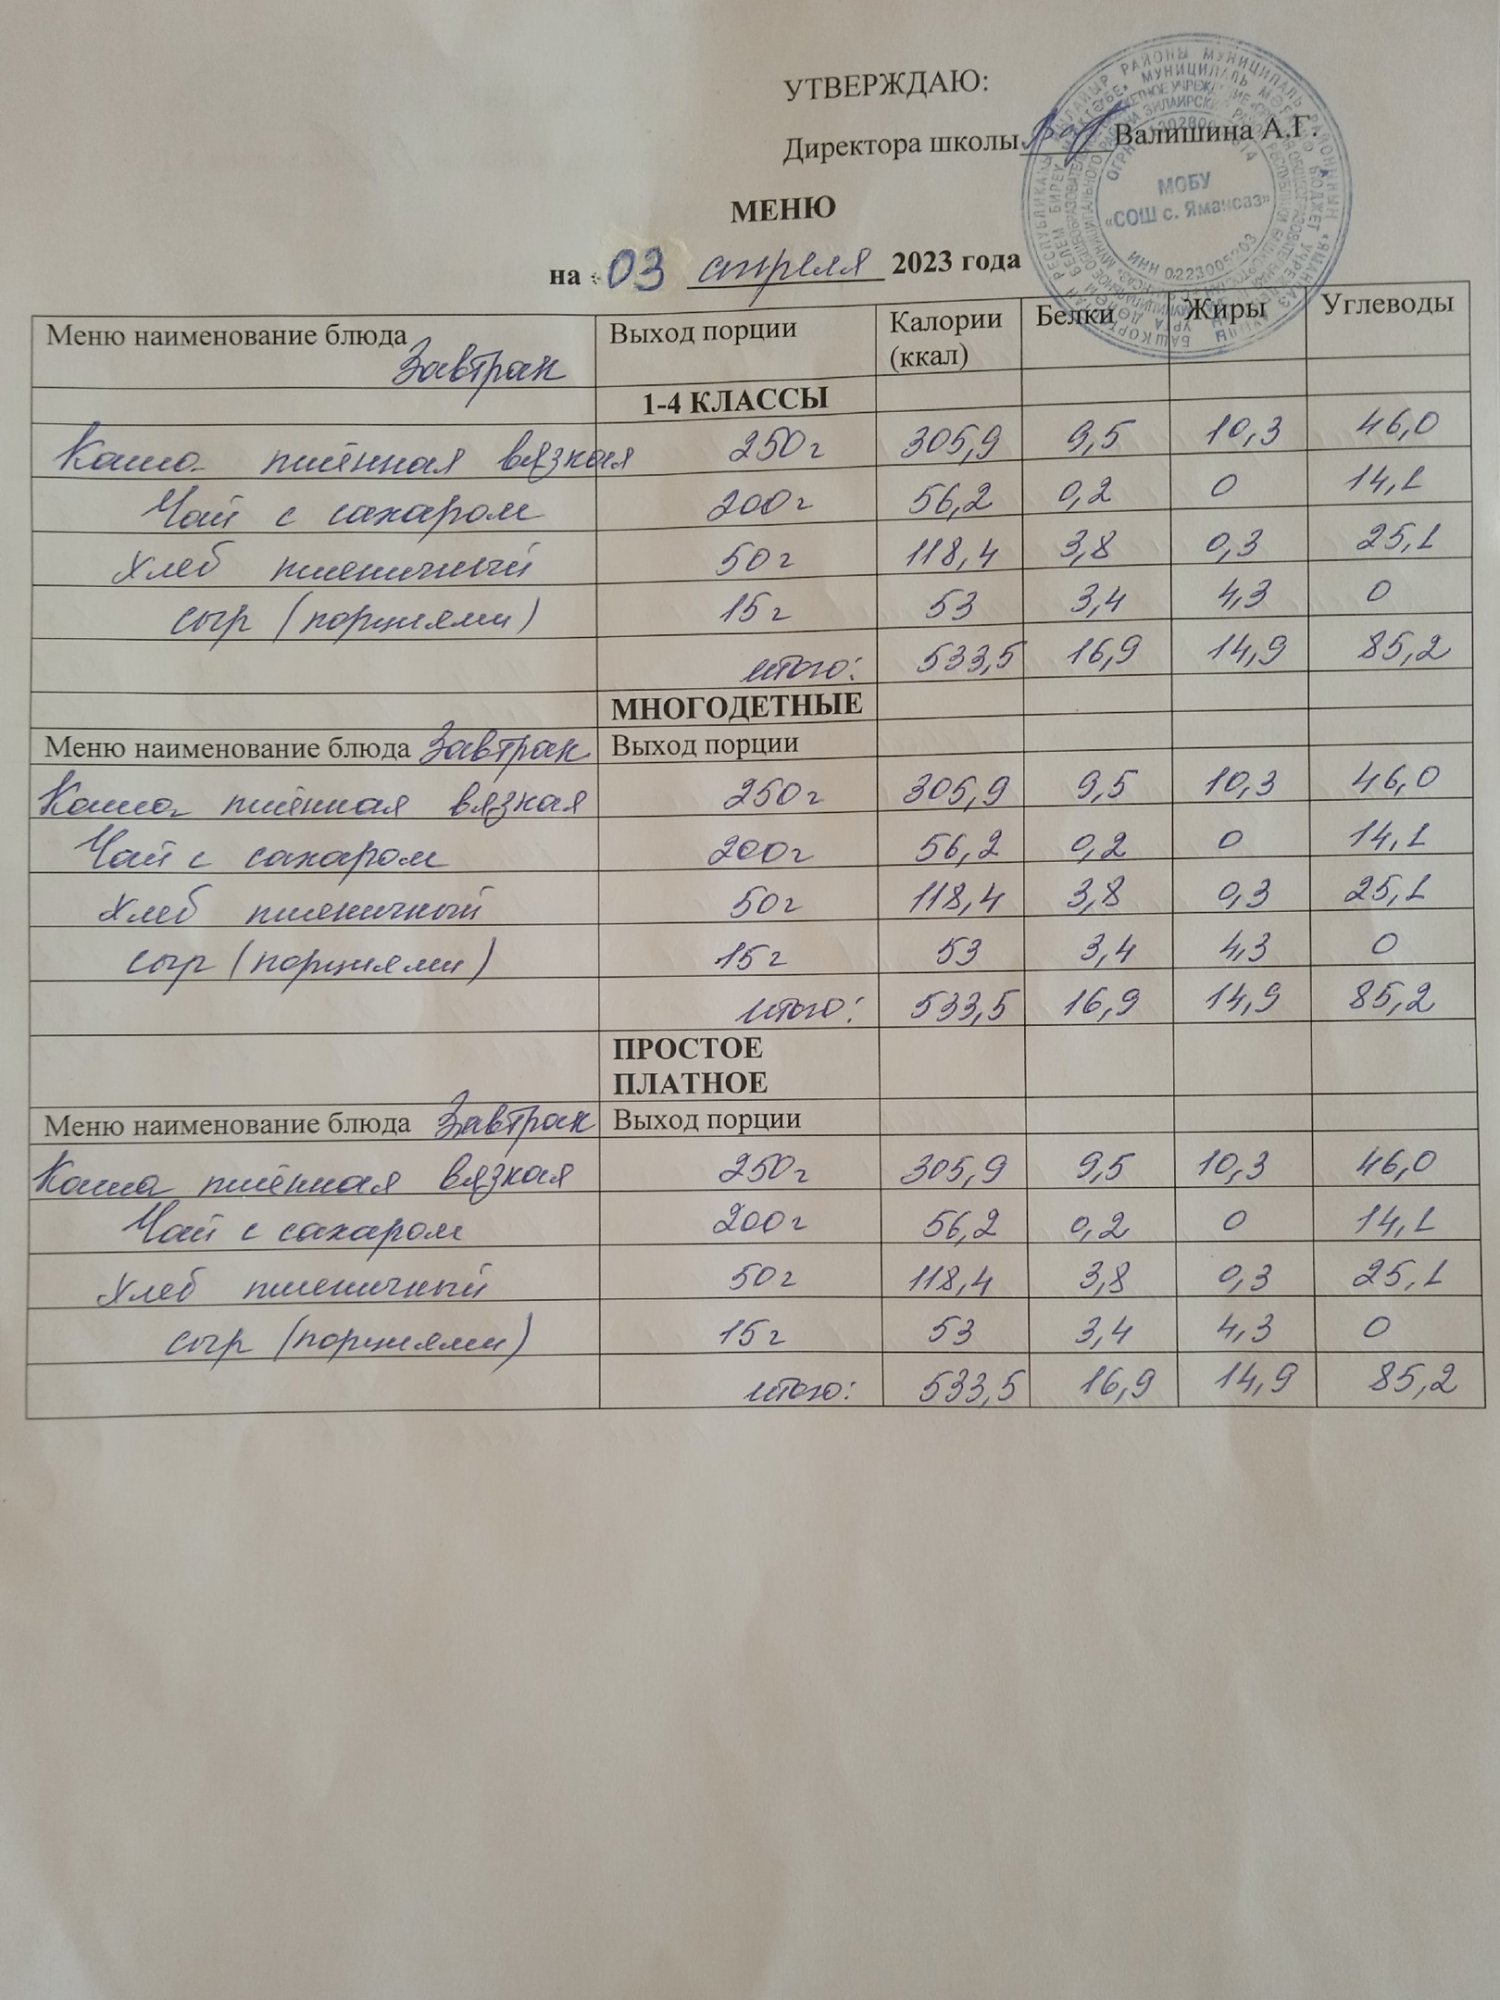 УТВЕРЖДАЮ:
Директора школы Валишина А.Г.
МОБУ
«СОШ с. Ямансаз»
ИНН 0223005203
МЕНЮ
на 03 апреля 2023 года
Меню наименование блюда Завтрак Выход порции Калории (ккал) Белки Жиры Углеводы
1-4 КЛАССЫ
Каша пшённая вязкая 250г 305,9 9,5 10,3 46,0
Чай с сахаром 200г 56,2 0,2 0 14,1
Хлеб пшеничный 50г 118,4 3,8 0,3 25,1
сыр (порциями) 15г 53 3,4 4,3 0
итого: 533,5 16,9 14,9 85,2
МНОГОДЕТНЫЕ
Меню наименование блюда Завтрак Выход порции
Каша пшённая вязкая 250г 305,9 9,5 10,3 46,0
Чай с сахаром 200г 56,2 0,2 0 14,1
Хлеб пшеничный 50г 118,4 3,8 0,3 25,1
сыр (порциями) 15г 53 3,4 4,3 0
итого: 533,5 16,9 14,9 85,2
ПРОСТОЕ
ПЛАТНОЕ
Меню наименование блюда Завтрак Выход порции
Каша пшённая вязкая 250г 305,9 9,5 10,3 46,0
Чай с сахаром 200г 56,2 0,2 0 14,1
Хлеб пшеничный 50г 118,4 3,8 0,3 25,1
сыр (порциями) 15г 53 3,4 4,3 0
итого: 533,5 16,9 14,9 85,2